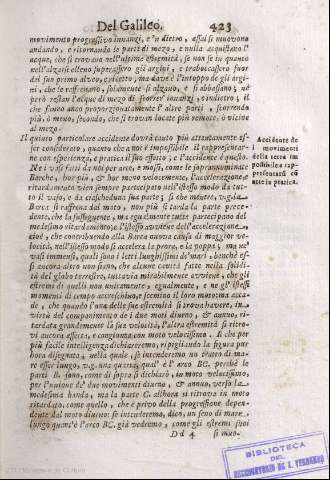 Del Galileo. 423
movimento progressivo innanzi, e 'n dietro, assai si muovono
andando, e ritornando le parti di mezo, e nulla acquistano l'
acque, che si trovano nell'ultime estremità, se non se in quanto
nell'alzarsi elleno superassero gli argini, e traboccassero fuor
del suo primo alveo, e ricetto; ma dove è l'intoppo de gli argi-
ni, che le raffrenano, solamente si alzano, e si abbassano; nè
però restan l'acque di mezo di scorrer innanzi, e indietro, il
che fanno anco proporzionatamente l'altre parti, scorrendo
più, ò meno, secondo, che si trovan locate più remote, ò vicine
al mezo.
Il quinto particolare accidente dovrà tanto più attentamente es-
ser considerato, quanto che a noi è impossibile il rappresentar-
ne con esperienza, e pratica il suo effetto, e l'accidente è questo.
Ne i vasi fatti da noi per arte, e mossi, come le soprannominate
Barche, hor più, & hor meno velocemente, l'accelerazione, e
ritardamento vien sempre participato nell'istesso modo da tut-
to il vaso, e da ciascheduna sua parte; sì che mentre, v.g. la
Barca si raffrena dal moto, non più si tarda la parte prece-
dente, che la sussequente, ma egualmente tutte participano del
medesimo ritardamento, e l'istesso avviene dell'accelerazione,
cioè, che contribuendo alla Barca nuova causa di maggior ve-
locità, nell'istesso modo si accelera la prora, e la poppa; ma ne'
vasi immensi, quali sono i letti lunghissimi de' mari, benchè es-
si ancora altro non siano, che alcune cavità fatte nella solidi-
tà del globo terrestre, tuttavia mirabilmente avviene, che gli
estremi di quelli non unitamente, egualmente, e ne gl'istessi
momenti di tempo accreschino, e scemino il loro moto, ma acca-
de, che quando l'una delle sue estremità si trova havere, in
virtù del componimento de i due moti diurno, & annuo, ri-
tardata grandemente la sua velocità, l'altra estremità si ritro-
vi ancora affetta, e congiunta con moto velocissimo. Il che per
più facile intelligenza dichiareremo, ripigliando la figura pur
hora disegnata, nella quale, se intenderemo un tratto di ma-
re esser lungo, v.g. una quarta, qual è l'arco BC. perchè le
parti B. sono, come di sopra si dichiarò, in moto velocissimo,
per l'unione de' due movimenti diurno, & annuo, verso la
medesima banda, ma la parte C. allhora si ritrova in moto
ritardato, come quello, che è privo della progressione depen-
dente dal moto diurno: se intenderemo, dico, un seno di mare,
lungo quant'è l'arco BC. già vedremo, come gli estremi suoi
Dd 4 si muo-
Accidente de
i movimenti
della terra im
possibile a rap
presentarsi cō
arte in pratica.
BIBLIOTECA
DEL